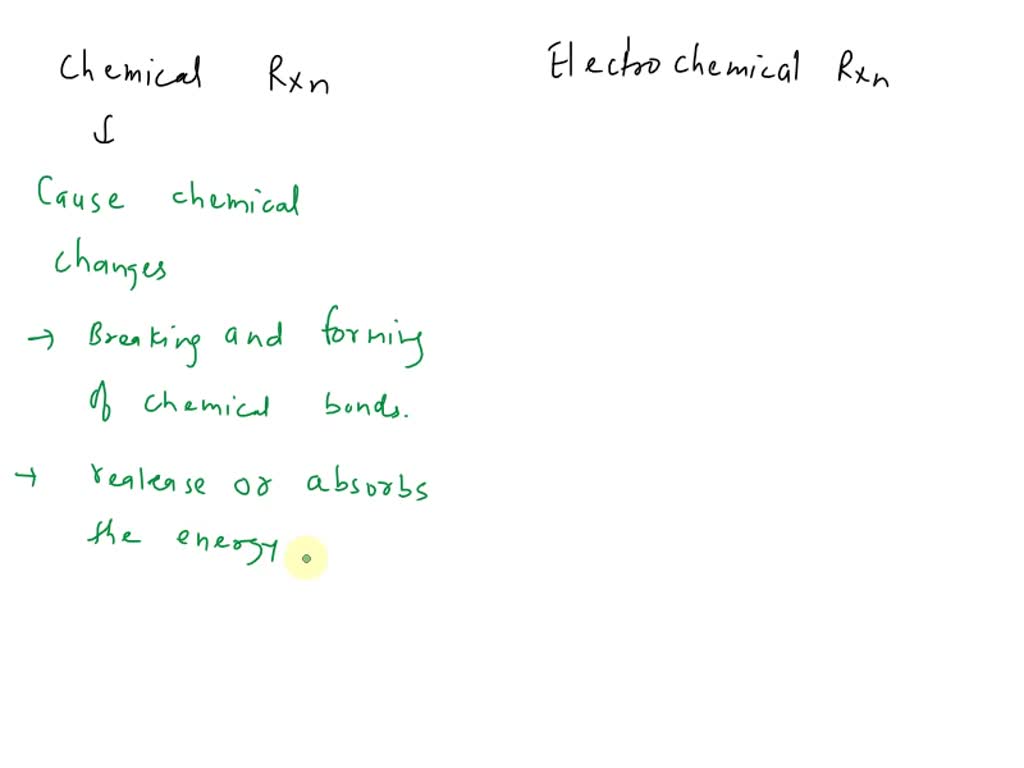 Chemical Rxn
Electrochemical Rxn
↓
Cause chemical
changes
→ Breaking and forming
of chemical bonds.
→ realease or absorbs
the energy